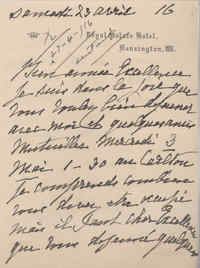 Samedi 23 avril 16
Royal Palace Hotel,
Kensington, W.
27-4-/16
Bien aimée Excellence
Je suis dans la joie que
vous voulez bien déjeuner
avec moi et quelques amis
Mercredi 3
Mai 1-30 au Carlton
Je comprends combien
vous devez être occupé
mais il faut cher Excellence
que vous déjeunez quelque